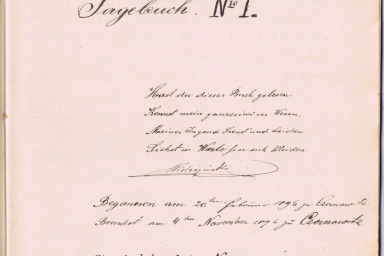 Tagebuch. No 1.
Hast du dieses Buch gelesen
Kennst mein ganzes Wesen,
Meiner Jugend Freud und Leiden
Siehst in Worte sich kleiden
Begonnen am 20ten Februar 1896 zu Czernowitz
Beendet am 4ten November 1896 zu Czernowitz